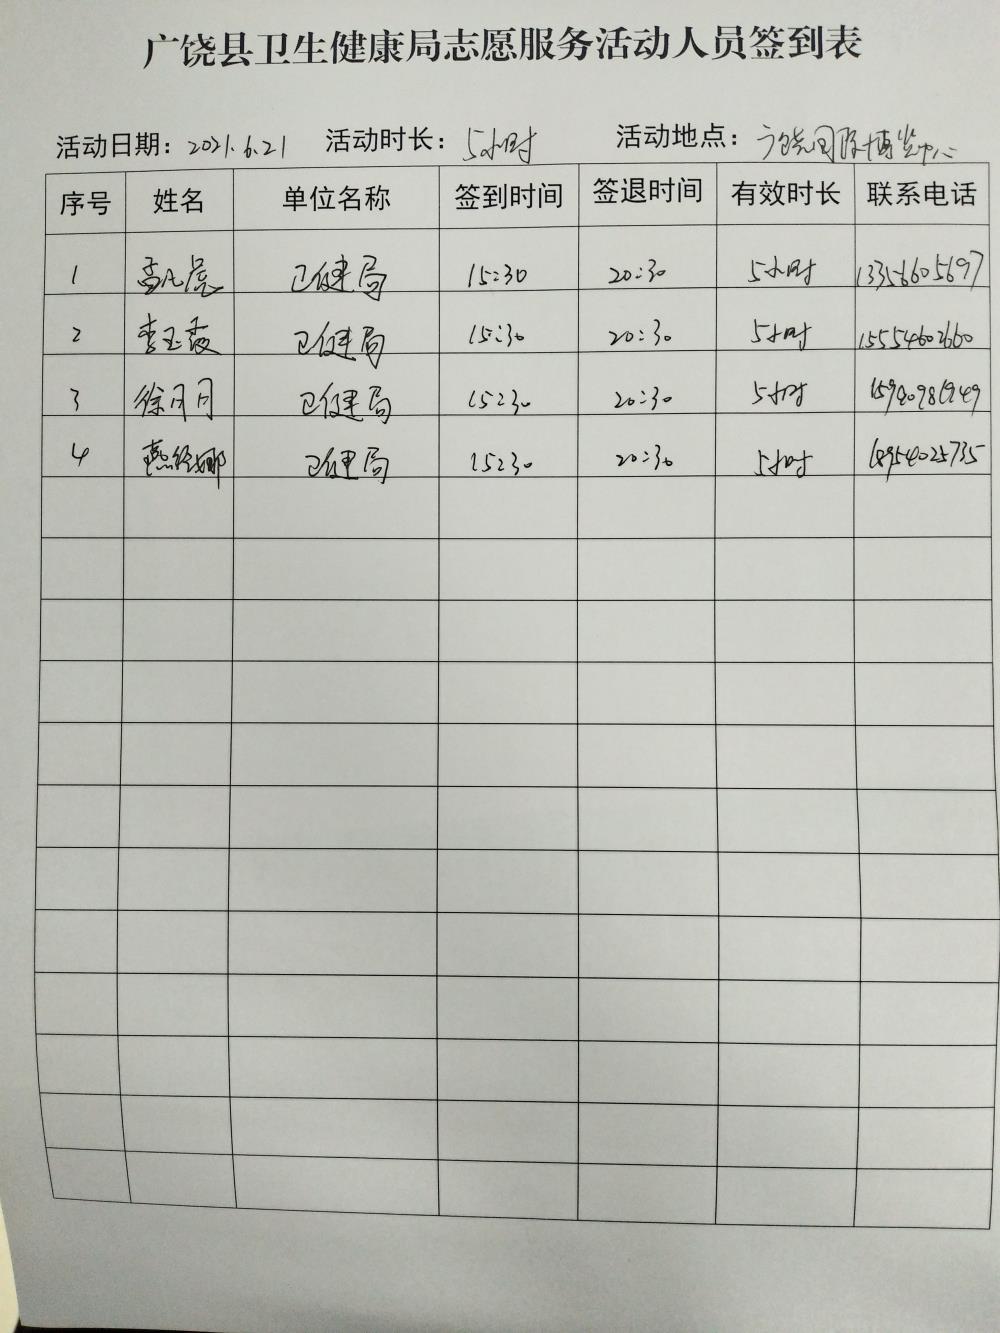 广饶县卫生健康局志愿服务活动人员签到表
活动日期：2021.6.21 活动时长：5小时 活动地点：广饶国际博览中心
序号 姓名 单位名称 签到时间 签退时间 有效时长 联系电话
1 卫健局 15:30 20:30 5小时 13356605697
2 李玉霞 卫健局 15:30 20:30 5小时 15554602660
3 徐月月 卫健局 15:30 20:30 5小时
4 卫健局 15:30 20:30 5小时 18954025735